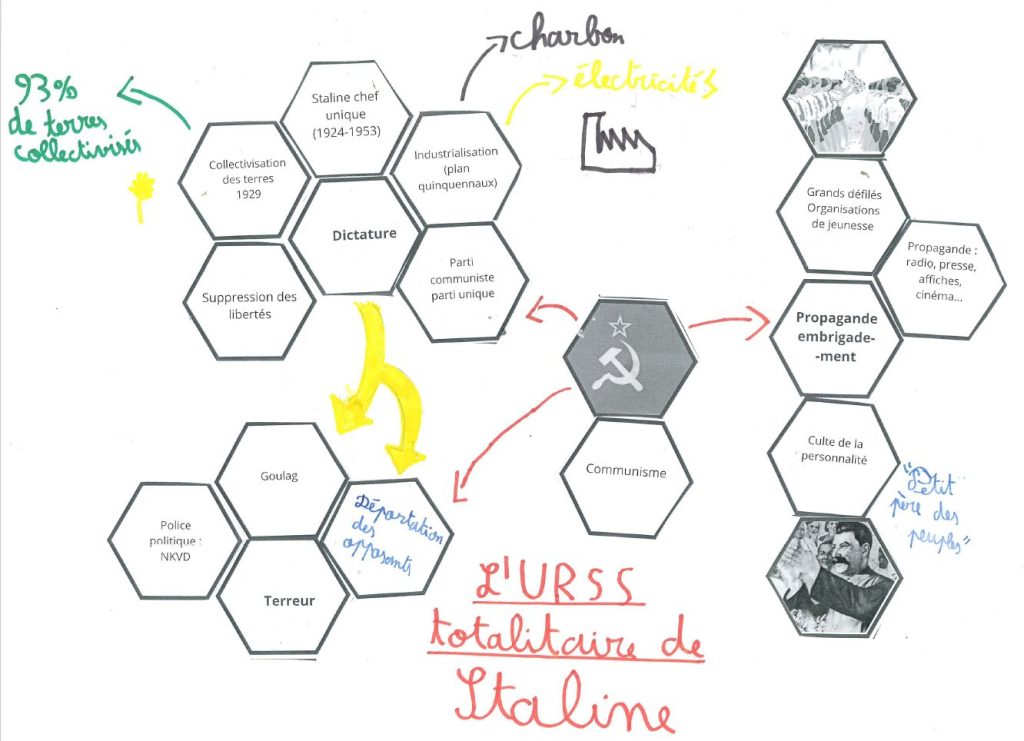 charbon
électricités
93%
de terres
collectivisés
Staline chef
unique
(1924-1953)
Collectivisation
des terres
1929
Industrialisation
(plan
quinquennaux)
Dictature
Suppression des
libertés
Parti
communiste
parti unique
Grands défilés
Organisations
de jeunesse
Propagande :
radio, presse,
affiches,
cinéma...
Propagande
embrigade-
-ment
Communisme
Culte de la
personnalité
"Petit
père des
peuples"
Goulag
Police
politique :
NKVD
Déportation
des
opposants
Terreur
L'URSS
totalitaire de
Staline